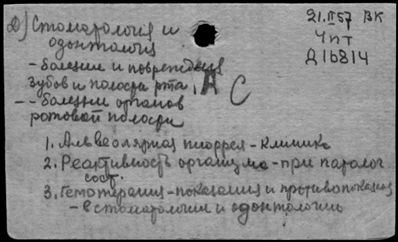 Д) Стоматология и
одонтология
- болезни и повреждения
зубов и полости рта, А С
-- болезни органов
ротовой полости
1. Альвеолярная пиоррея - клиника
2. Реактивность организма - при патолог
сост.
3. Гемотерапия - показания и противопоказания
- в стоматологии и одонтологии
21.II 57 ВК
Чит
Д16814